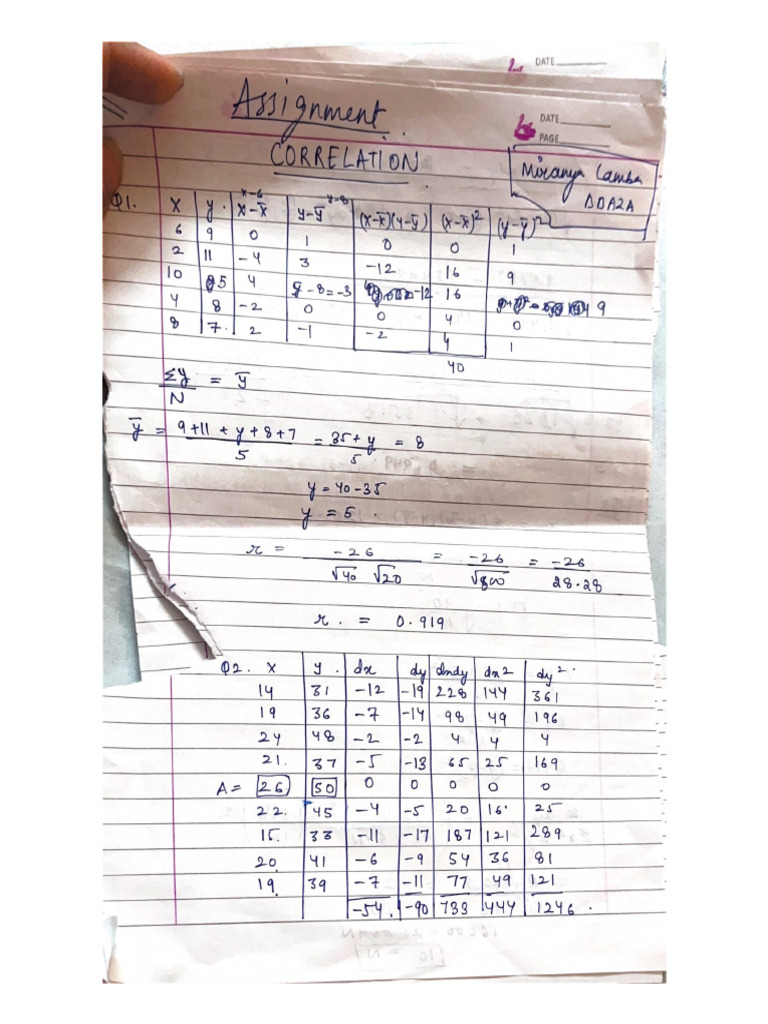 DATE
DATE
PAGE
Assignment
CORRELATION
Lamba
DDA2A
x-6 y-8
Q1. X y. x-x̄ y-ȳ (x-x̄)(y-ȳ) (x-x̄)² (y-ȳ)²
6 9 0 1 0 0 1
2 11 -4 3 -12 16 9
10 5 4 5-8=-3 -12 16 9
4 8 -2 0 0 4 0
8 7. 2 -1 -2 4 1
40
Σy/N = ȳ
ȳ = 9+11+y+8+7/5 = 35+y/5 = 8
y = 40-35
y = 5.
r = -26/√40 √20 = -26/√800 = -26/28.28
r. = 0.919
Q2. X y. dx dy dxdy dx2 dy2.
14 31 -12 -19 228 144 361
19 36 -7 -14 98 49 196
24 48 -2 -2 4 4 4
21. 37 -5 -13 65 25 169
A= 26 50 0 0 0 0 0
22. 45 -4 -5 20 16 25
15. 33 -11 -17 187 121 289
20. 41 -6 -9 54 36 81
19. 39 -7 -11 77 49 121
-54. -90 733 444 1246.